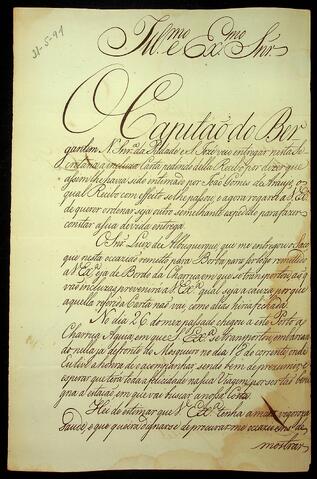 31-5-91
Ill.mo e Ex.mo Snr.
O Capitão do Ber
gantim N. Snr.a da Piedade e S. José veio entregar nesta Se
cretaria a incluza Carta pedindo della Recibo por dizer que
assim lhe havia sido ordenado por João Gomes de Araujo, o
qual Recibo com effeito se lhe passou, e agora rogará a V. Ex.a
de querer ordenar seja outro semelhante expedido para fazer
constar a sua devida entrega.
O Snr. Luiz de Albuquerque, que me entregou o Saco
que nesta occazião remetto para Bordo para por todo remettido
a V. Ex.a ja de Bordo da Charrua em que se transportou, as q.
vai incluzas prevenirá a V. Ex.a qual seja a razão porque
aquella referida Carta não vai, como as mais hirá fechada.
No dia 26 do mez passado chegou a este Porto a
Charrua Aguia, em que S. Ex.a se transportou, embarcan
do nella, ja defronte do Mosqueiro no dia 13 do corrente, onde
tive a honra de o acompanhar, sendo bem de prezumir, e
esperar que terá toda a felicidade na sua Viagem, por ser tão beni
gna a estação em que vai buscar a nossa Corte.
Hei de estimar que V. Ex.a tenha a mais vigoroza
Saude, e que queira dignar-se de procurar-me occazioens de
mostrar